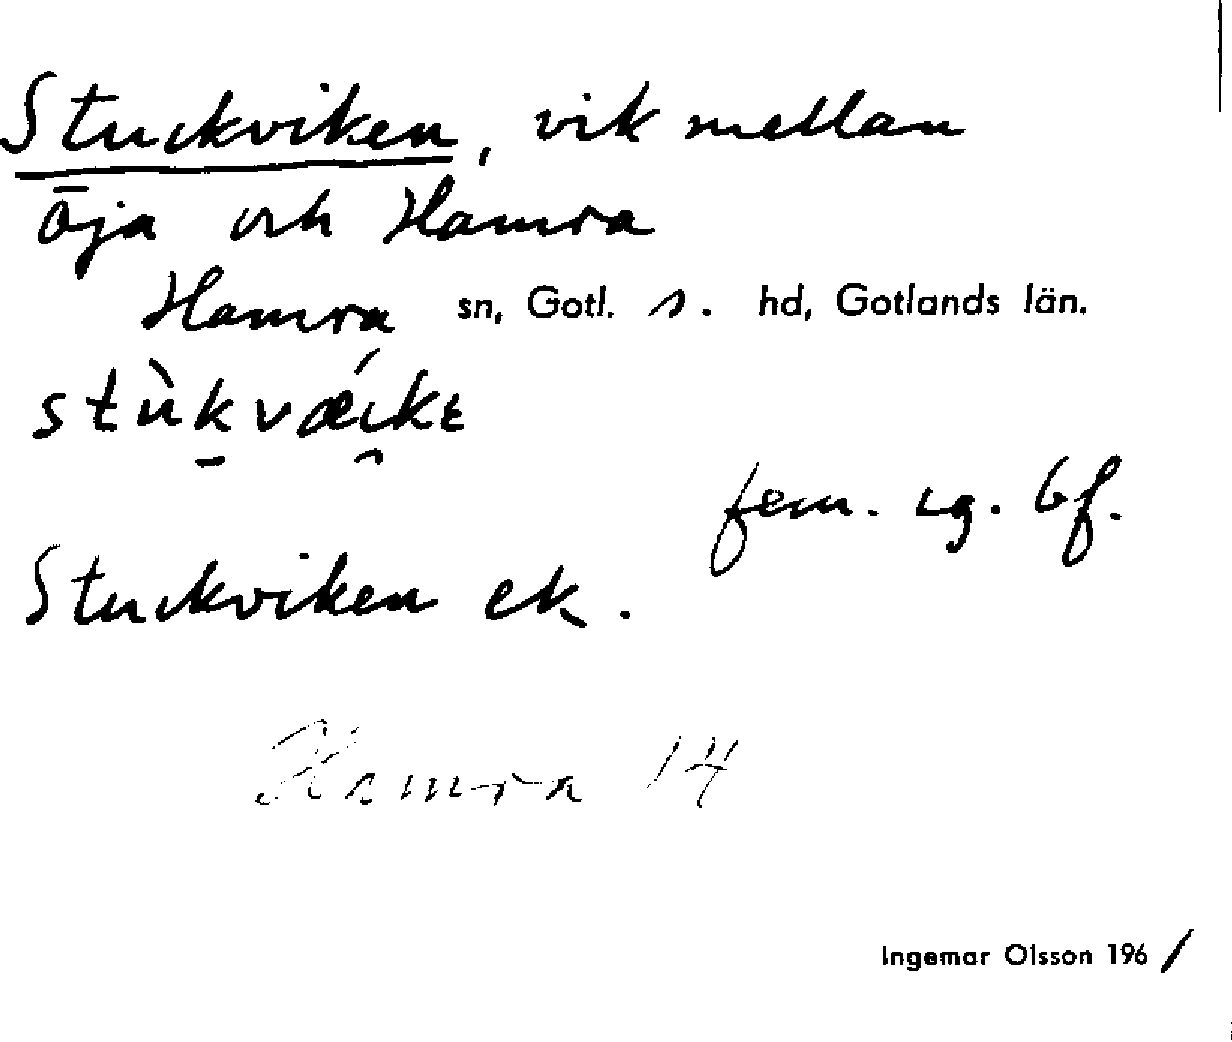 Stuckviken, vik mellan
Öja och Hamra
Hamra sn, Gotl. s. hd, Gotlands län.
stùkvǽi̯kɛ
fem. sg. bf.
Stuckviken ek.
Hamra 14
Ingemar Olsson 196/